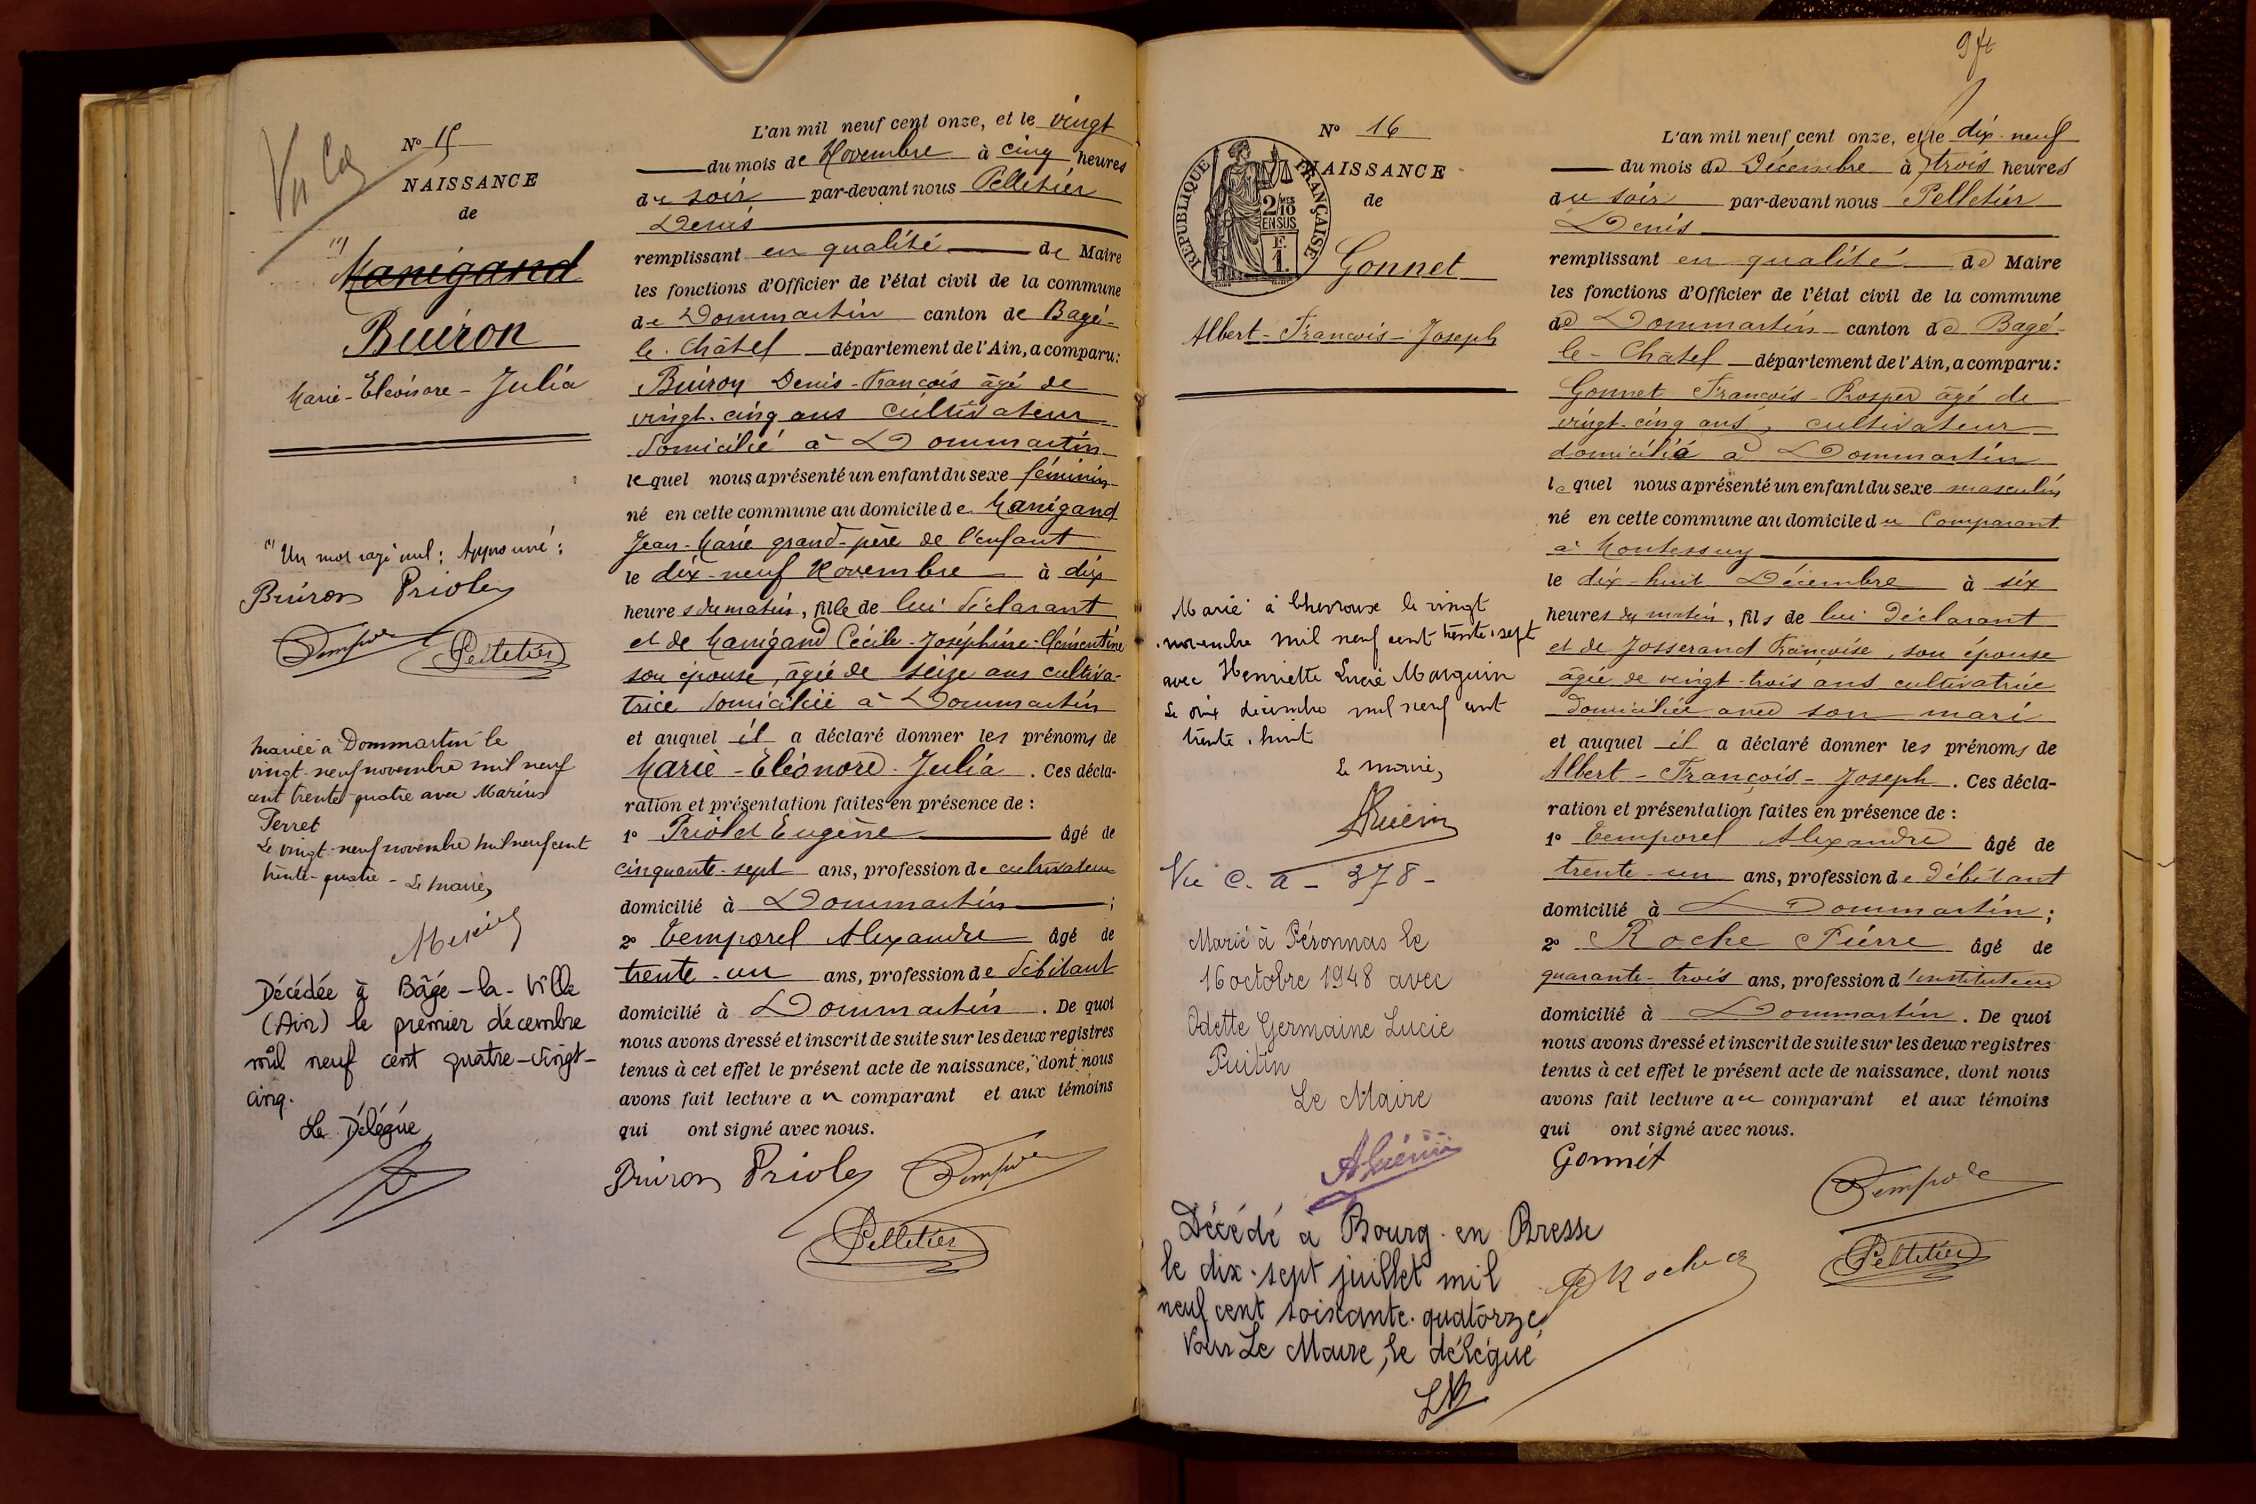 Nº 15
NAISSANCE
de
(1)
Manigand
Buiron
Marie-Eléonore-Julia
(1) Un mot rayé nul : Approuvé :
Buiron Priolet
Pelletier
Mariée à Dommartin le
vingt-neuf novembre mil neuf
cent trente-quatre avec Marius
Perret
Le vingt-neuf novembre mil neuf cent
trente-quatre - Le Maire,
Décédée à Bâgé-la-Ville
(Ain) le premier décembre
mil neuf cent quatre-vingt-
cinq.
Le Délégué
L'an mil neuf cent onze, et le vingt
du mois de Novembre à cinq heures
du soir par-devant nous Pelletier
Denis
remplissant en qualité de Maire
les fonctions d'Officier de l'état civil de la commune
de Dommartin canton de Bagé-
le-Châtel département de l'Ain, a comparu :
Buiron Denis-François âgé de
vingt-cinq ans cultivateur
domicilié à Dommartin
lequel nous a présenté un enfant du sexe féminin
né en cette commune au domicile de Manigand
Jean-Marie grand-père de l'enfant
le dix-neuf Novembre à dix
heures du matin, fille de lui déclarant
et de Manigand Cécile-Joséphine-Clémentine
son épouse, âgée de seize ans cultiva-
trice domiciliée à Dommartin
et auquel il a déclaré donner les prénoms de
Marie-Eléonore-Julia. Ces décla-
ration et présentation faites en présence de :
1º Priolet Eugène âgé de
cinquante-sept ans, profession de cultivateur
domicilié à Dommartin ;
2º Temporel Alexandre âgé de
trente-un ans, profession de débitant
domicilié à Dommartin. De quoi
nous avons dressé et inscrit de suite sur les deux registres
tenus à cet effet le présent acte de naissance, dont nous
avons fait lecture au comparant et aux témoins
qui ont signé avec nous.
Buiron Priolet
Pelletier
Nº 16
NAISSANCE
de
RÉPUBLIQUE FRANÇAISE
2/10
EN SUS
Gonnet
Albert-François-Joseph
Marié à Chevroux le vingt
novembre mil neuf cent trente-sept
avec Henriette Lucie Marguin
Le dix décembre mil neuf cent
trente-huit
Le maire,
Vu C. a - 378 -
Marié à Péronnas le
16 octobre 1948 avec
Odette Germaine Lucie
Puitin
Le Maire
Décédé à Bourg-en-Bresse
le dix-sept juillet mil
neuf cent soixante-quatorze
Pour Le Maire, le délégué
L'an mil neuf cent onze, et le dix-neuf
du mois de Décembre à trois heures
du soir par-devant nous Pelletier
Denis
remplissant en qualité de Maire
les fonctions d'Officier de l'état civil de la commune
de Dommartin canton de Bagé-
le-Châtel département de l'Ain, a comparu :
Gonnet François-Prosper âgé de
vingt-cinq ans, cultivateur
domicilié à Dommartin
lequel nous a présenté un enfant du sexe masculin
né en cette commune au domicile du Comparant
à Montessuy
le dix-huit Décembre à six
heures du matin, fils de lui déclarant
et de Josserand Françoise, son épouse
âgée de vingt-trois ans cultivatrice
domiciliée avec son mari
et auquel il a déclaré donner les prénoms de
Albert-François-Joseph. Ces décla-
ration et présentation faites en présence de :
1º Temporel Alexandre âgé de
trente-un ans, profession de débitant
domicilié à Dommartin ;
2º Roche Pierre âgé de
quarante-trois ans, profession d'instituteur
domicilié à Dommartin. De quoi
nous avons dressé et inscrit de suite sur les deux registres
tenus à cet effet le présent acte de naissance, dont nous
avons fait lecture au comparant et aux témoins
qui ont signé avec nous.
Gonnet
Pelletier